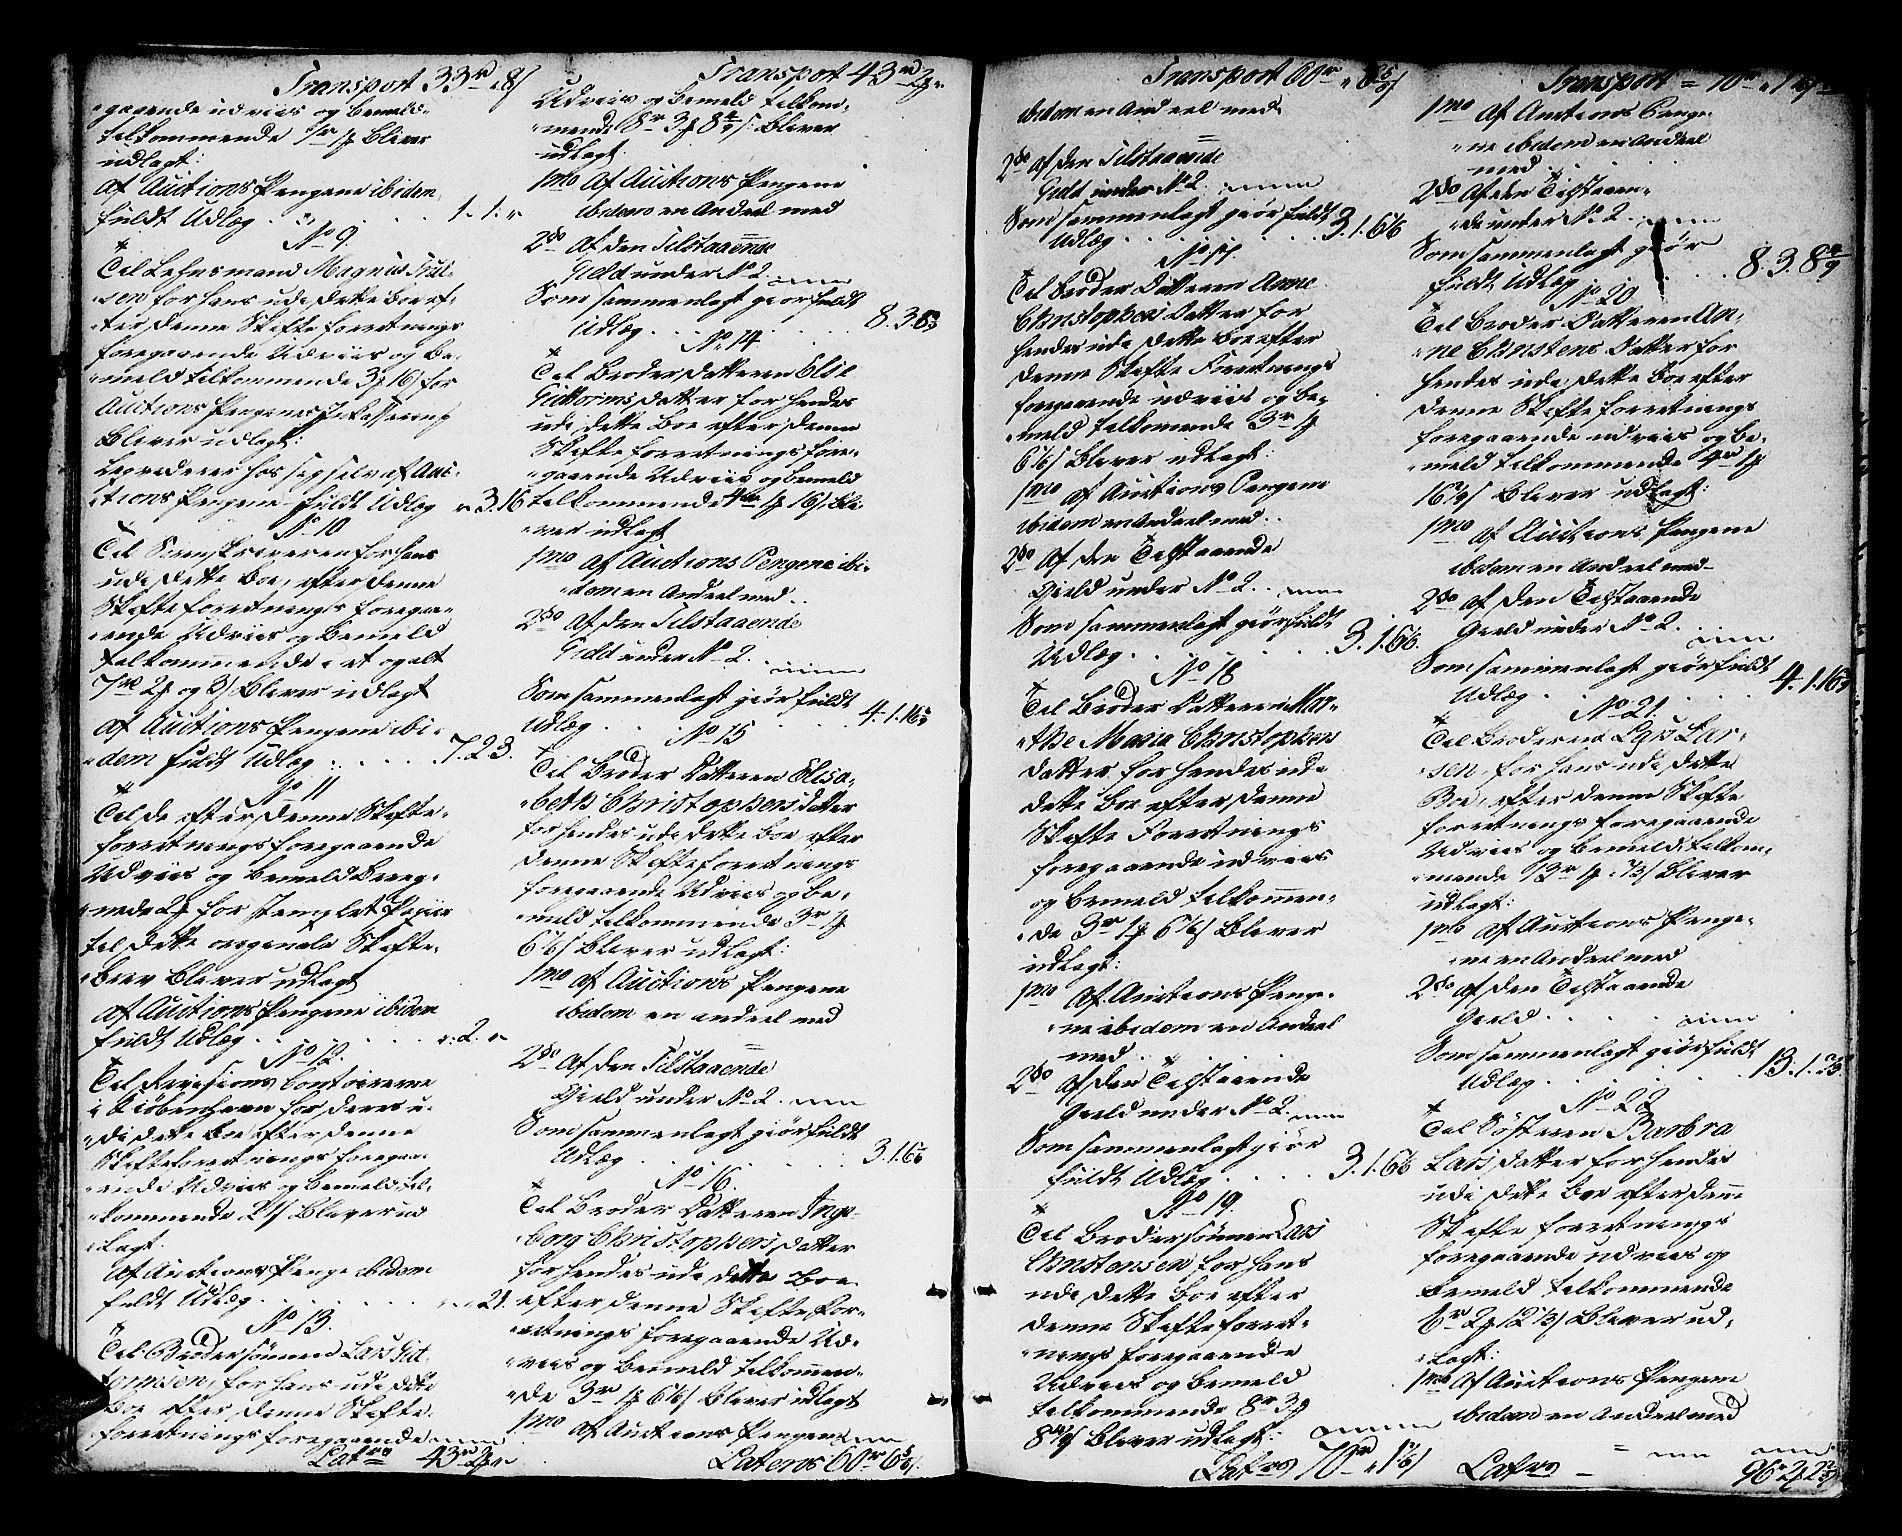 Transport 33 rd 8 s
gaaende udviis og bemeld-
tilkommende 1 rd 1 s Bliver
udlagt:
Af Auctions Pengene ibidem
fuldt Udlæg . . . 1. 1. "
No 9
Til Lehnsmand Magnus Tul-
sen for hans udi dette Boe ef-
ter denne Skifte forretnings
foregaaende Udviis og be-
meld tilkommende 3 16 s for
Auctions Pengenes Incassering
bliver udlagt:
Beqvederes hos sig selv af Auc-
tions Pengene fuldt Udlæg " 3. 16
No 10
Til Sorenskriveren for hans
udi dette Boe, efter denne
Skifte forretnings foregaa-
ende Udviis og bemeld
tilkommende i et og alt
7 rd 2 og 3 s Bliver udlagt
af Auctions Pengene ibi-
dem fuldt Udlæg . . . 7. 2 3.
No 11
Til de efter denne Skifte-
forretnings foregaaende
Udviis og bemeld bereg-
nede 2 for stemplet Papiir
til dette originale Skifte-
brev bliver udlagt
af Auctions Pengene ibidem
fuldt Udlæg . . . " 2. "
No 12.
Til Revisions Contoirerne
i Kiøbenhavn for deres u-
di dette Boe efter denne
Skifteforretnings foregaa-
ende Udviis og bemeld til-
kommende 21 s Bliver ud-
lagt.
Af Auctions Penge ibidem
fuldt Udlæg . . . 21.
No 13.
Til Brodersønnen Lars Gut-
tormsen, for hans udi dette
Boe efter denne Skifte-
forretnings foregaaende
Latus 43 rd 2 "
Transport 43 rd 2 "
Udviis og bemeld tilkom-
mende 8 rd 3 8 4/9 s: Bliver
udlagt.
1mo Af Auctions Pengene
ibidem en Andeel med
2do Af den Tilstaaende
Gield under No 2.
Som sammenlagt giør fuldt
Udlæg . . . 8. 3. 8
No 14
Til Broder Datteren Else
Guttorms datter for hendes
udi dette Boe efter denne
Skifte forretnings fore-
gaaende Udviis og bemeld
tilkommende 4 rd 1 16 s Bli-
ver udlagt
1mo Af Auctions Pengene ibi-
dem en Andeel med . .
2do Af den Tilstaaende
Gield under No 2.
Som sammenlagt giør fuldt
Udlæg . . . 4. 1. 16
No 15
Til Broder Datteren Elisa-
beth Christophersdatter
for hendes udi dette Boe efter
denne Skifteforretnings
foregaaende Udviis og be-
meld tilkommende 3 rd 1
6 1/6 s Bliver udlagt:
1mo Af Auctions Pengene
ibidem en andeel med
2do Af den Tilstaaende
Gield under No 2.
Som sammenlagt giør fuldt
Udlæg . . . 3. 1. 6
No 16.
Til Broder Datteren Inge-
borg Christophers datter
for hendes udi dette Boe
efter denne Skifte for-
retnings foregaaende Ud-
viis og bemeld tilkommen-
de 3 rd 1 6 1/6 s Bliver udlagt
1mo Af Auctions Pengene
Lateros 60 rd 6 s.
Transport 60 rd 6 s
ibidem en Andeel med
2do Af den Tilstaaende
Gield under No 2.
Som sammenlagt giør fuldt
Udlæg . . . 3. 1. 6 1/6
No 17.
Til Broder Datteren Anne
Christophers Datter for
hendes udi dette Boe efter
denne Skifte Forretnings
foregaaende udviis og be-
meld tilkommende 3 rd 1
6 1/6 s Bliver udlagt:
1mo af Auctions Pengene
ibidem en Andeel med . .
2do Af den Tilstaaende
Gield under No 2.
Som sammenlagt giør fuldt
Udlæg . . . 3. 1. 6 1/6.
No 18
Til Broder Datteren Mar-
the Maria Christophers
datter for hendes udi
dette Boe efter denne
Skifte Forretnings
foregaaende udviis
og bemeld tilkommen-
de 3 rd 1 6 1/6 s Bliver
udlagt:
1mo Af Auctions Penge-
ne ibidem en Andeel
med . .
2do Af den Tilstaaende
Gield under No 2.
Som sammenlagt giør
fuldt Udlæg . . . 3. 1. 6 1/6
No 19.
Til Brodersønnen Lars
Christensen for hans
udi dette Boe efter
denne Skifteforret-
nings foregaaende
Udviis og bemeld
tilkommende 8 rd 3
8 4/9 s Bliver udlagt:
Latus 70 rd 1 s
Transport = 70 rd 1
1mo Af Auctions Penge-
ne ibidem en Andeel
med
2do Af den Tilstaaen-
de under No 2.
Som sammenlagt giør
fuldt Udlæg . . . 8. 3. 8 4/9
No 20
Til Broder Datteren An-
ne Christens Datter for
hendes udi dette Boe efter
denne Skifte forretnings
foregaaende udviis og be-
meld tilkommende 4 rd 1
16 2/9 s Bliver udlagt:
1mo af Auctions Pengene
ibidem en Andeel med
2do af den Tilstaaende
Gield under No 2.
Som sammenlagt giør fuldt
Udlæg . . . 4. 1. 16
No 21.
Til Broderen Lars Lar-
sen for hans udi dette
Boe, efter denne Skifte
forretnings foregaaende
Udviis og bemeld tilkom-
mende 13 rd 1 s Bliver
udlagt:
1mo af Auctions Penge-
ne en Andeel med
2do af den Tilstaaende
Gield . . .
Som sammenlagt giør fuldt
Udlæg . . . 13. 1.
No 22
Til Søsteren Barbra
Lars datter for hendes
udi dette Boe efter denne
Skifte forretnings
foregaaende udviis og
bemeld tilkommende
6 rd 2 12 1/3 s Bliver ud-
lagt:
1mo Af Auctions Pengene
ibidem en Andeel med
Latus - 96 rd 2 2